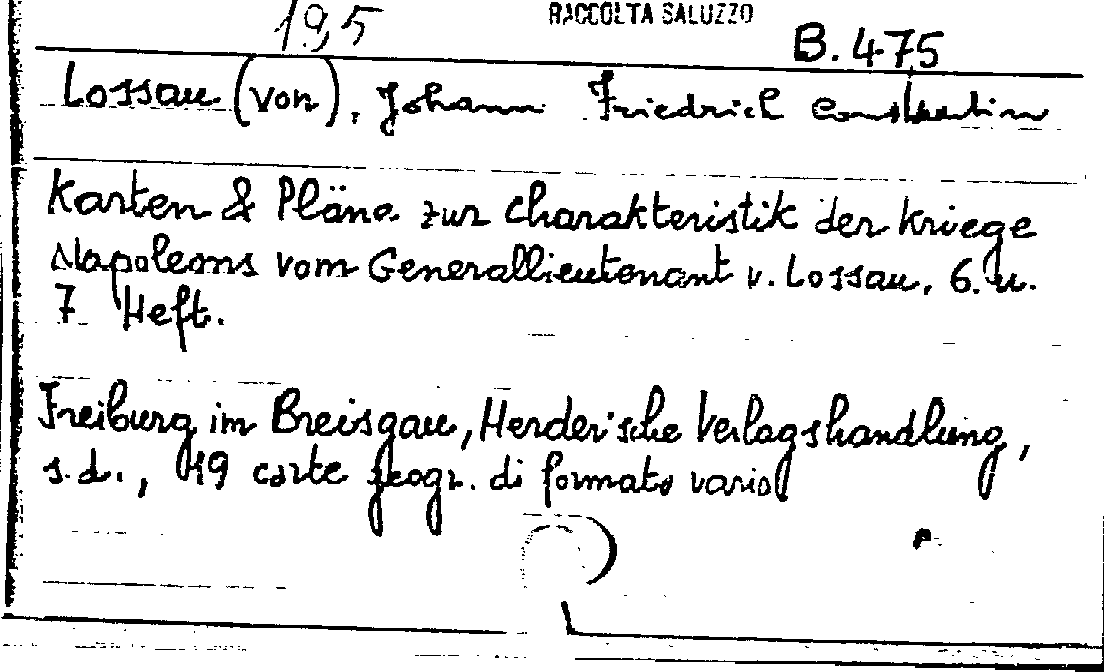 195
RACCOLTA SALUZZO
B. 475
Lossau (von), Johann Friedrich Constantin
Karten & Pläne zur Charakteristik der Kriege
Napoleons vom Generallieutenant v. Lossau, 6. u.
7 Heft.
Freiburg im Breisgau, Herder'sche Verlagshandlung,
s.d., 19 carte geogr. di formato vario